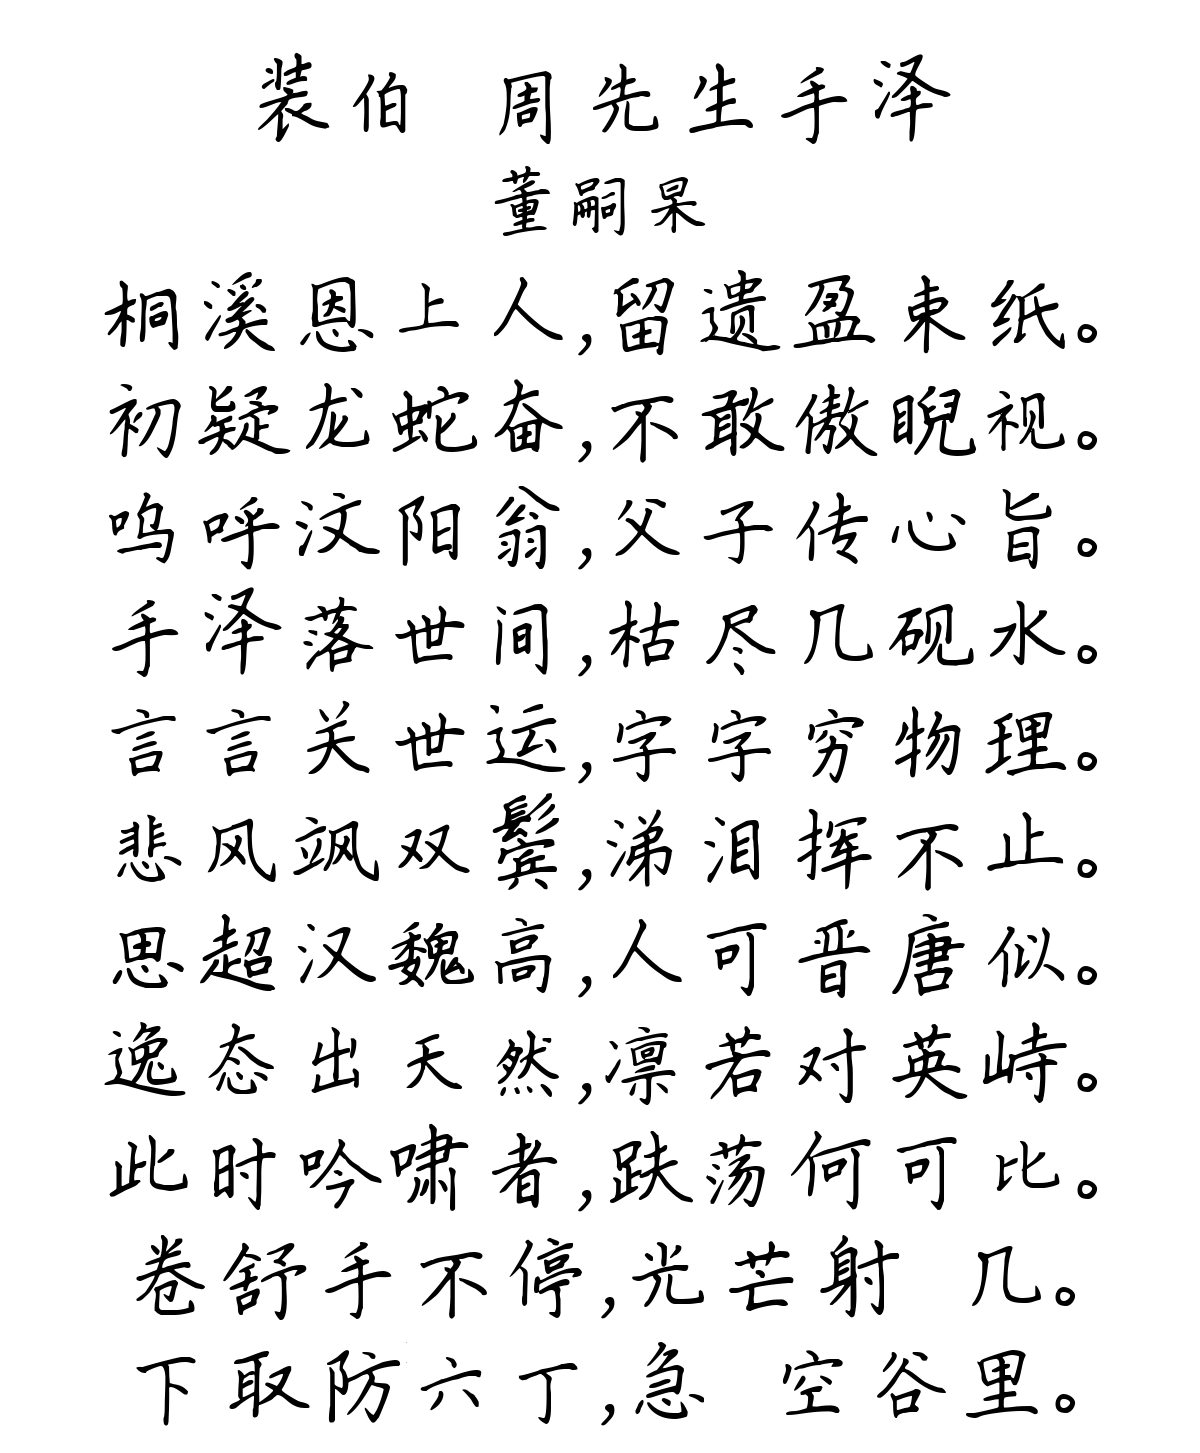 装伯 周先生手泽
董嗣杲
桐溪恩上人,留遗盈束纸。
初疑龙蛇奋,不敢傲睨视。
呜呼汶阳翁,父子传心旨。
手泽落世间,枯尽几砚水。
言言关世运,字字穷物理。
悲风飒双鬓,涕泪挥不止。
思超汉魏高,人可晋唐似。
逸态出天然,凛若对英峙。
此时吟啸者,趺荡何可比。
卷舒手不停,光芒射 几。
下取防六丁,急 空谷里。